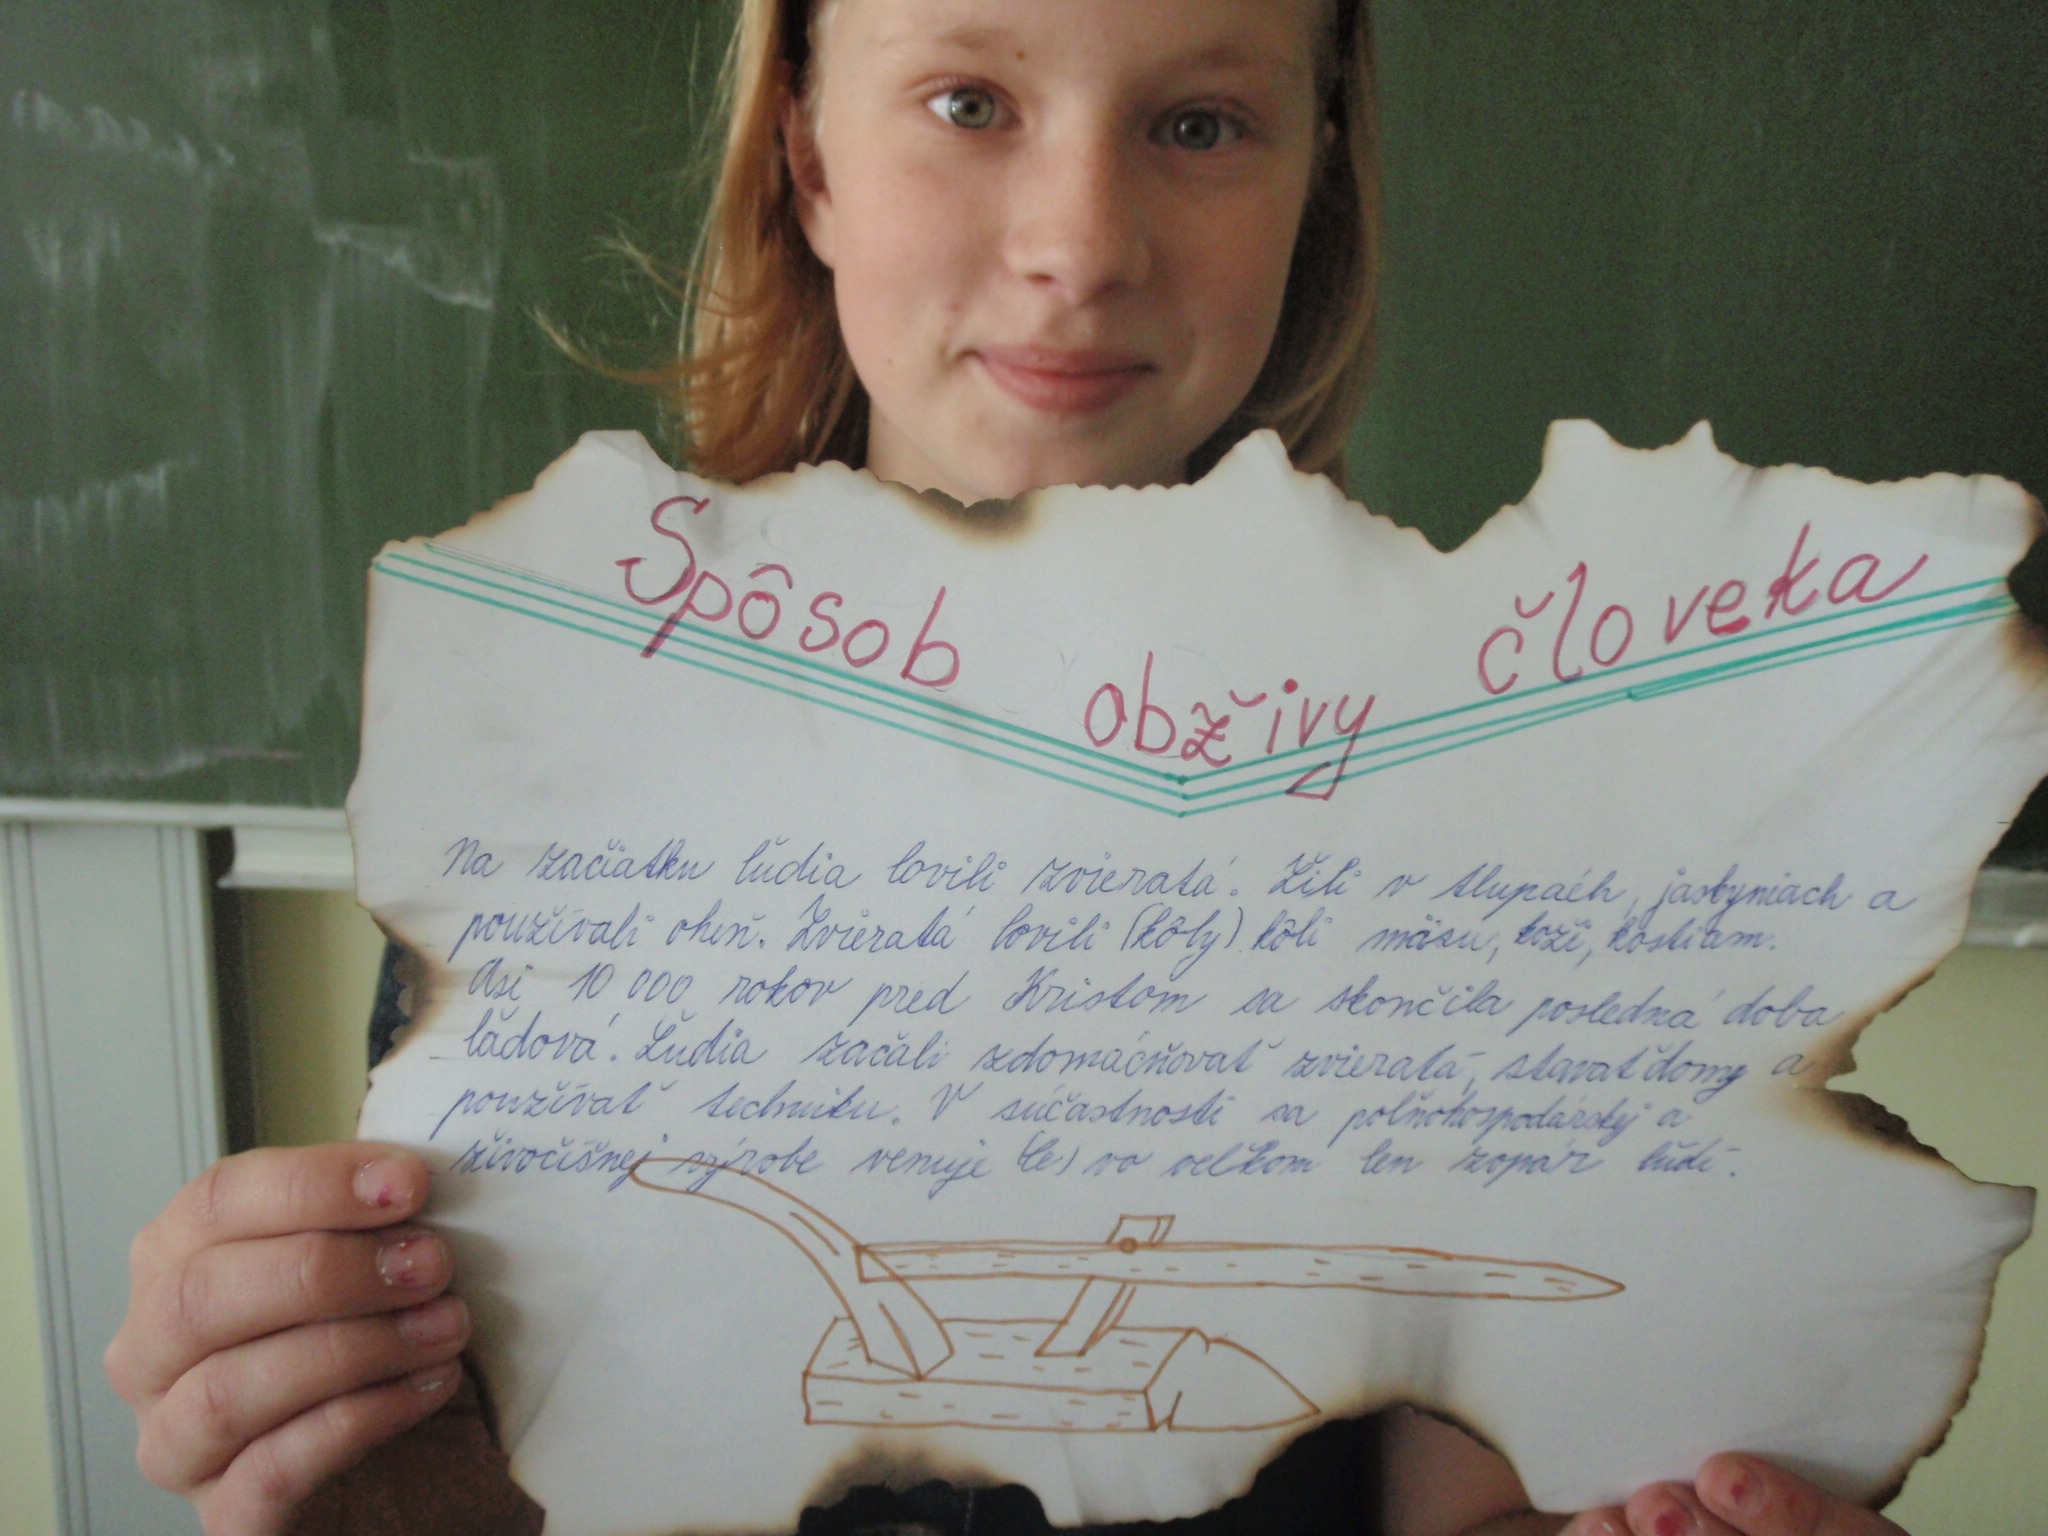 Spôsob obživy človeka
Na začiatku ľudia lovili zvieratá. Žili v tlupách, jaskyniach a
používali oheň. Zvieratá lovili (kôly) kôli mäsu, koži, kostiam.
Asi 10 000 rokov pred Kristom sa skončila posledná doba
ľadová. Ľudia začali zdomácňovať zvieratá, stavať domy a
používať techniku. V súčastnosti sa poľnohospodárskej a
živočíšnej výrobe venuje (le) vo veľkom len zopár ľudí.